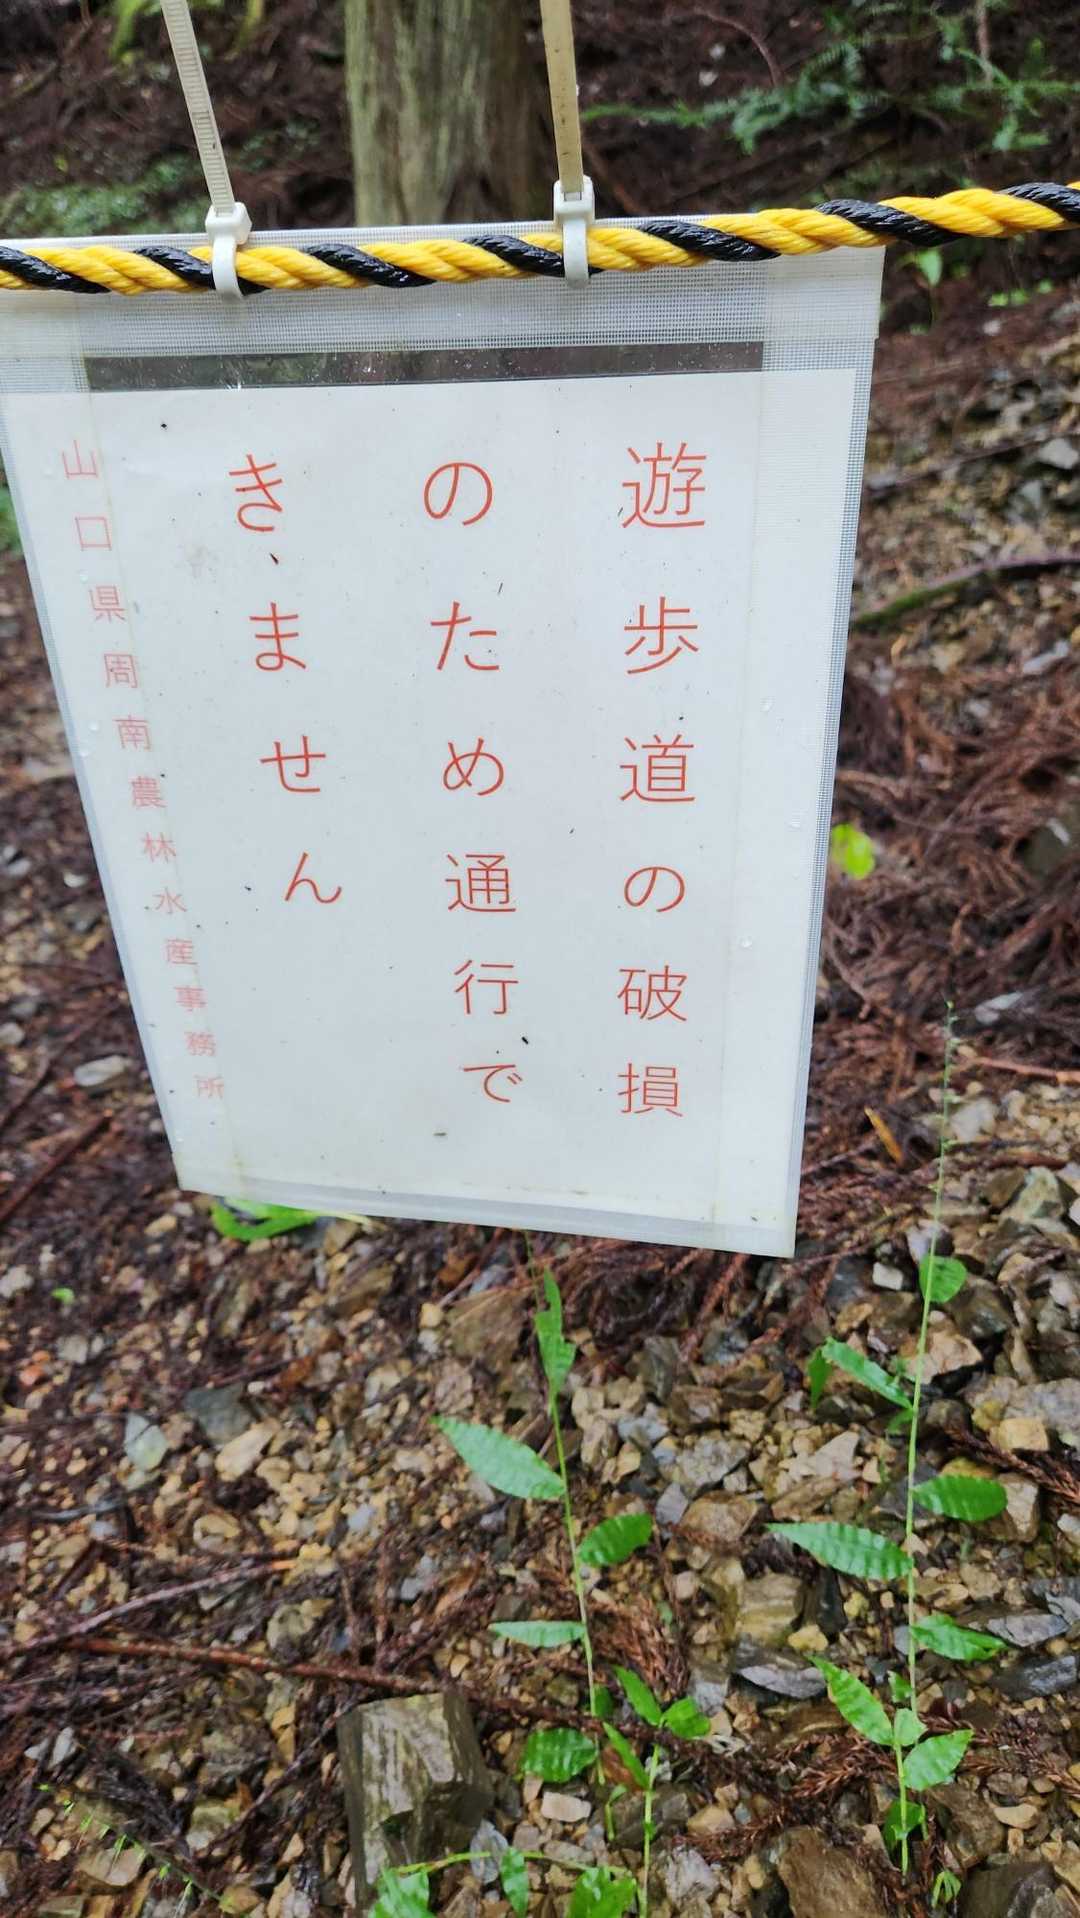 遊歩道の破損
のため通行で
きません
山口県周南農林水産事務所